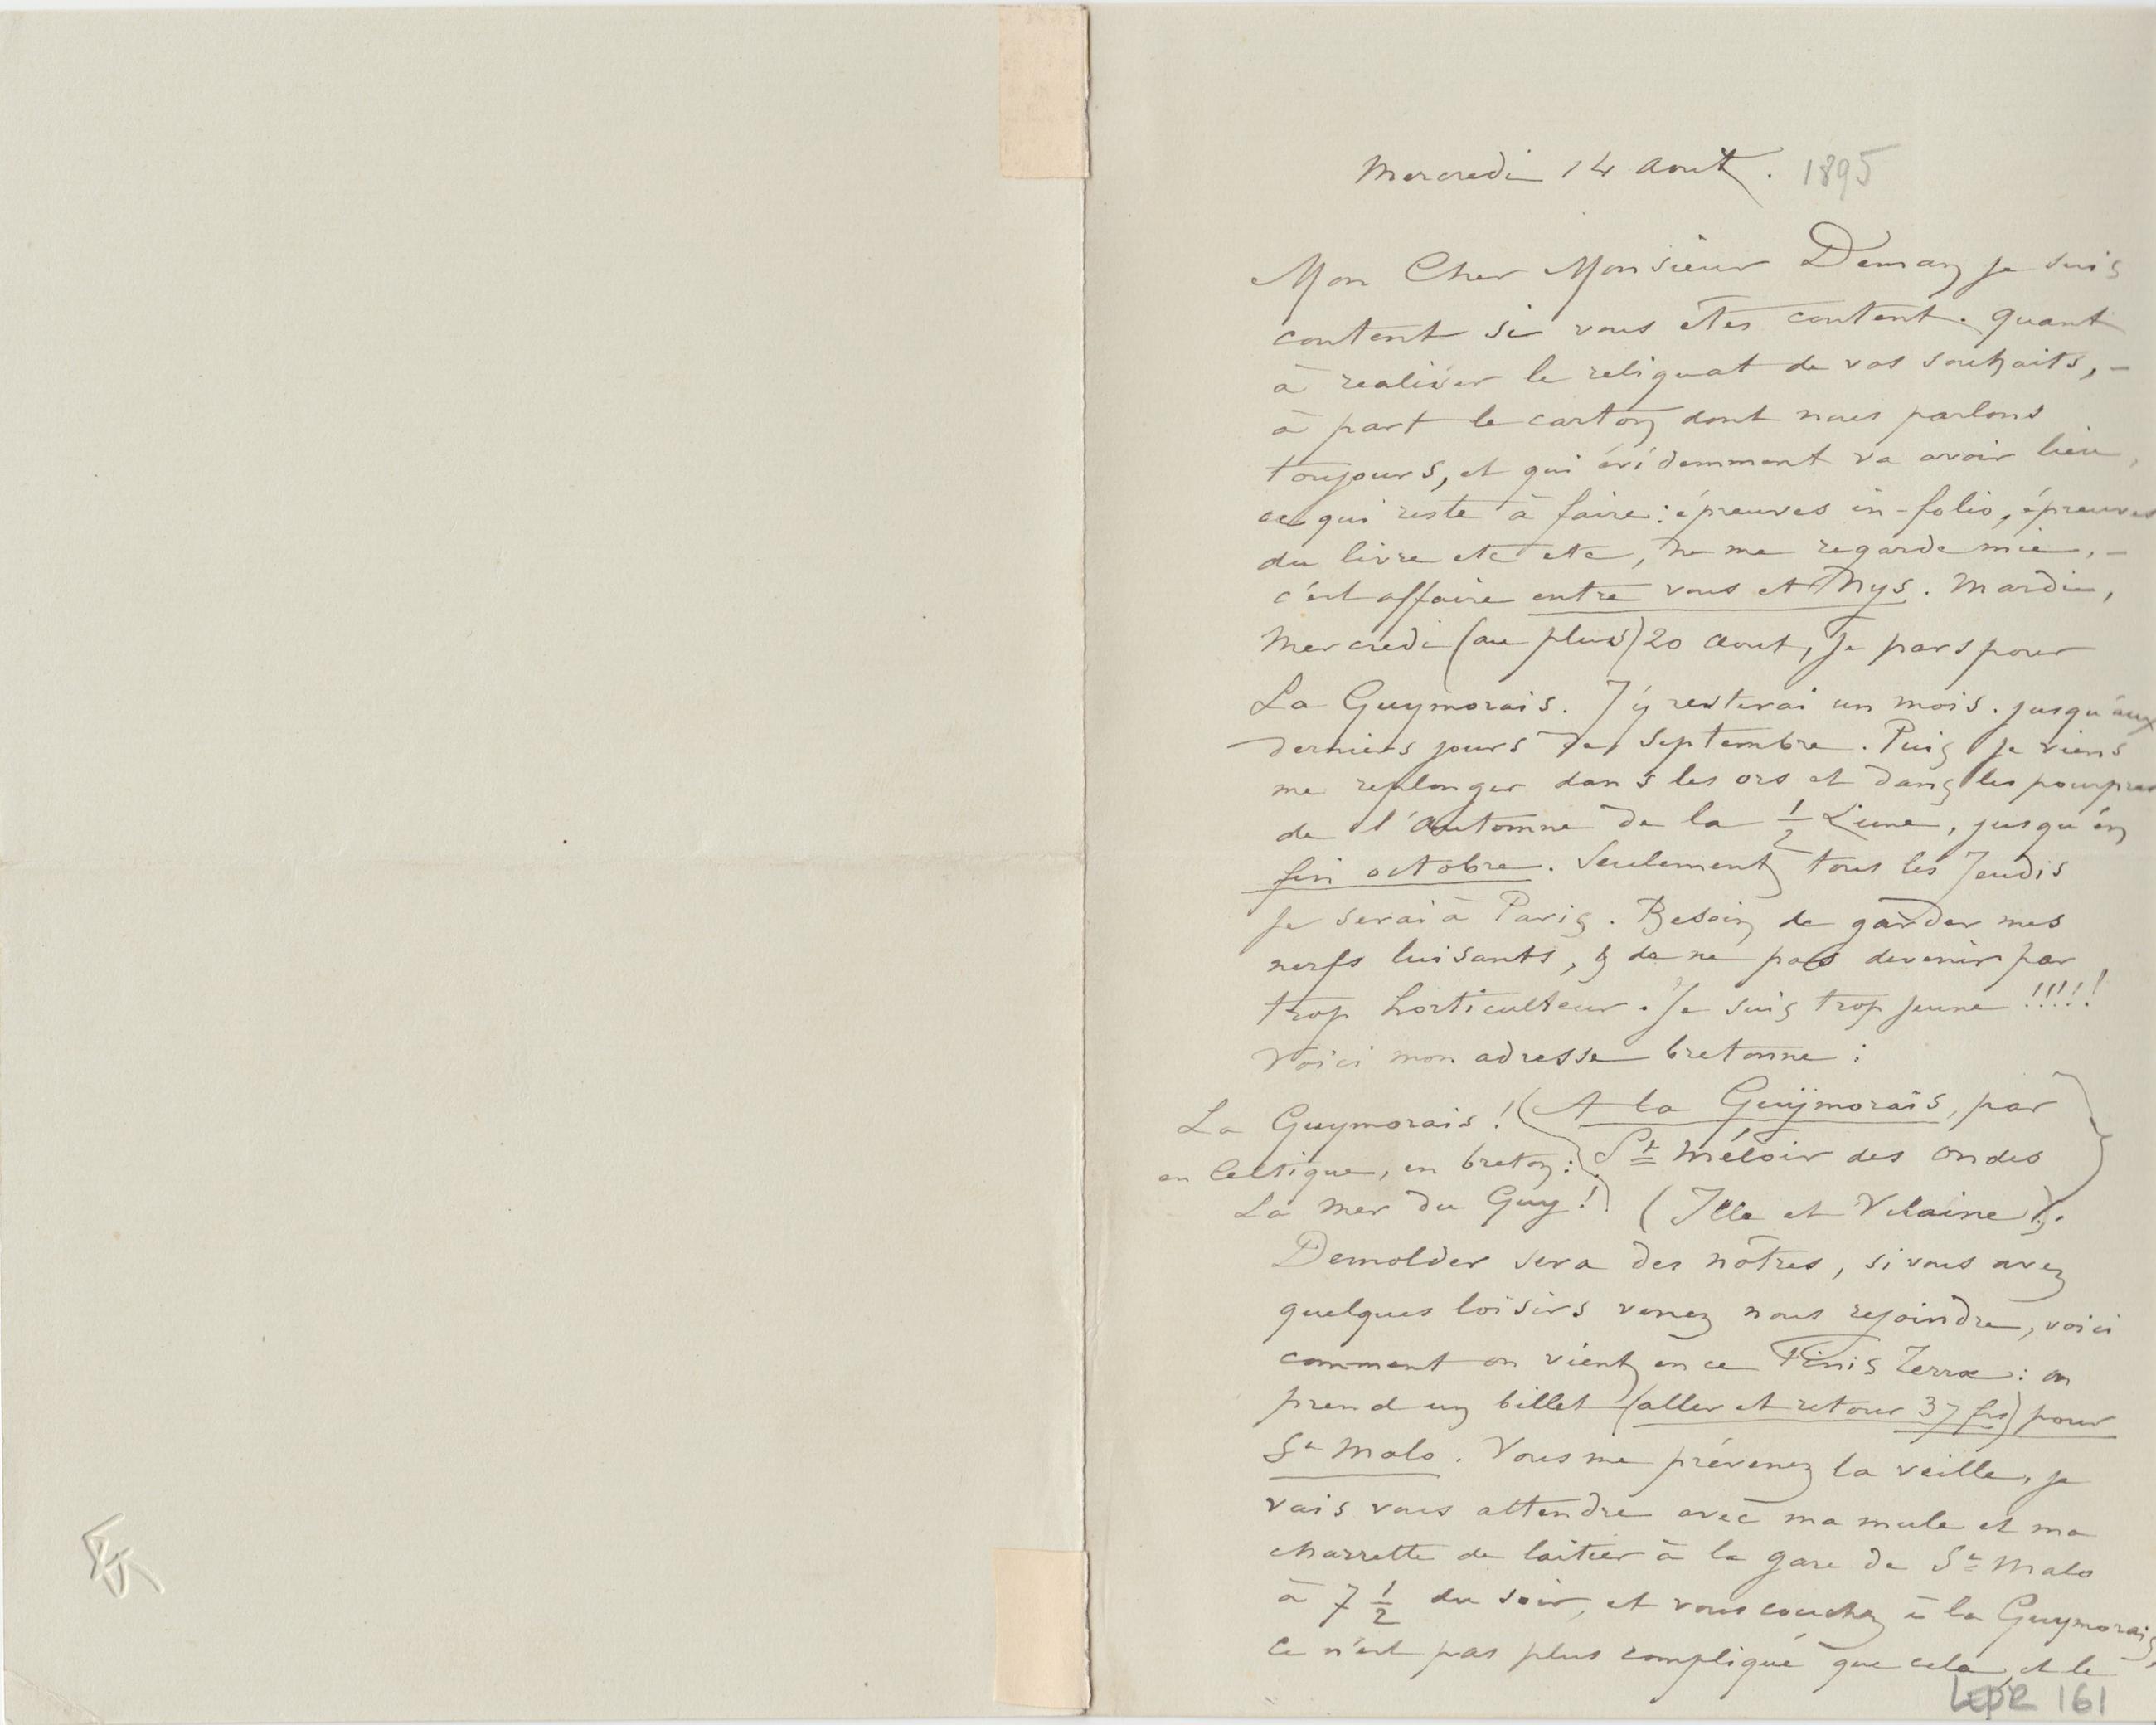 Mercredi 14 Aout. 1895
Mon Cher Monsieur Deman je suis
content si vous êtes content. Quant
à realiser le reliquat de vos souhaits, –
à part le carton dont nous parlons
toujours, et qui évidemment va avoir lieu,
ce qui reste à faire : épreuves in-folio, épreuves
du livre etc etc, ne me regarde mie, –
c'est affaire entre vous et Nys. Mardi,
Mercredi (au plus) 20 Aout, je pars pour
La Guymorais. J'y resterai un mois. jusqu'aux
derniers jours de Septembre. Puis je viens
me replonger dans les ors et dans les pourpres
de l'Automne de la 1/2 Lune, jusqu'en
fin octobre. Seulement tous les Jeudis
je serai à Paris. Besoin de garder mes
nerfs luisants, & de ne pas devenir par
trop horticulteur. Je suis trop jeune !!!!!
Voici mon adresse bretonne :
La Guymorais ! ( A la Guymorais, par
en Celtique, en breton : St Méloir des Ondes
La Mer du Guy ! ) (Ille et Vilaine).
Demolder sera des nôtres, si vous avez
quelques loisirs venez nous rejoindre, voici
comment on vient en ce Finis Terræ : on
prend un billet (aller et retour 37 frs) pour
St Malo. Vous me prévenez la veille, je
vais vous attendre avec ma mule et ma
charrette de laitier à la gare de St Malo
à 7 1/2 du soir, et vous couchez à la Guymorais,
Ce n'est pas plus compliqué que cela, et le
LEpR 161